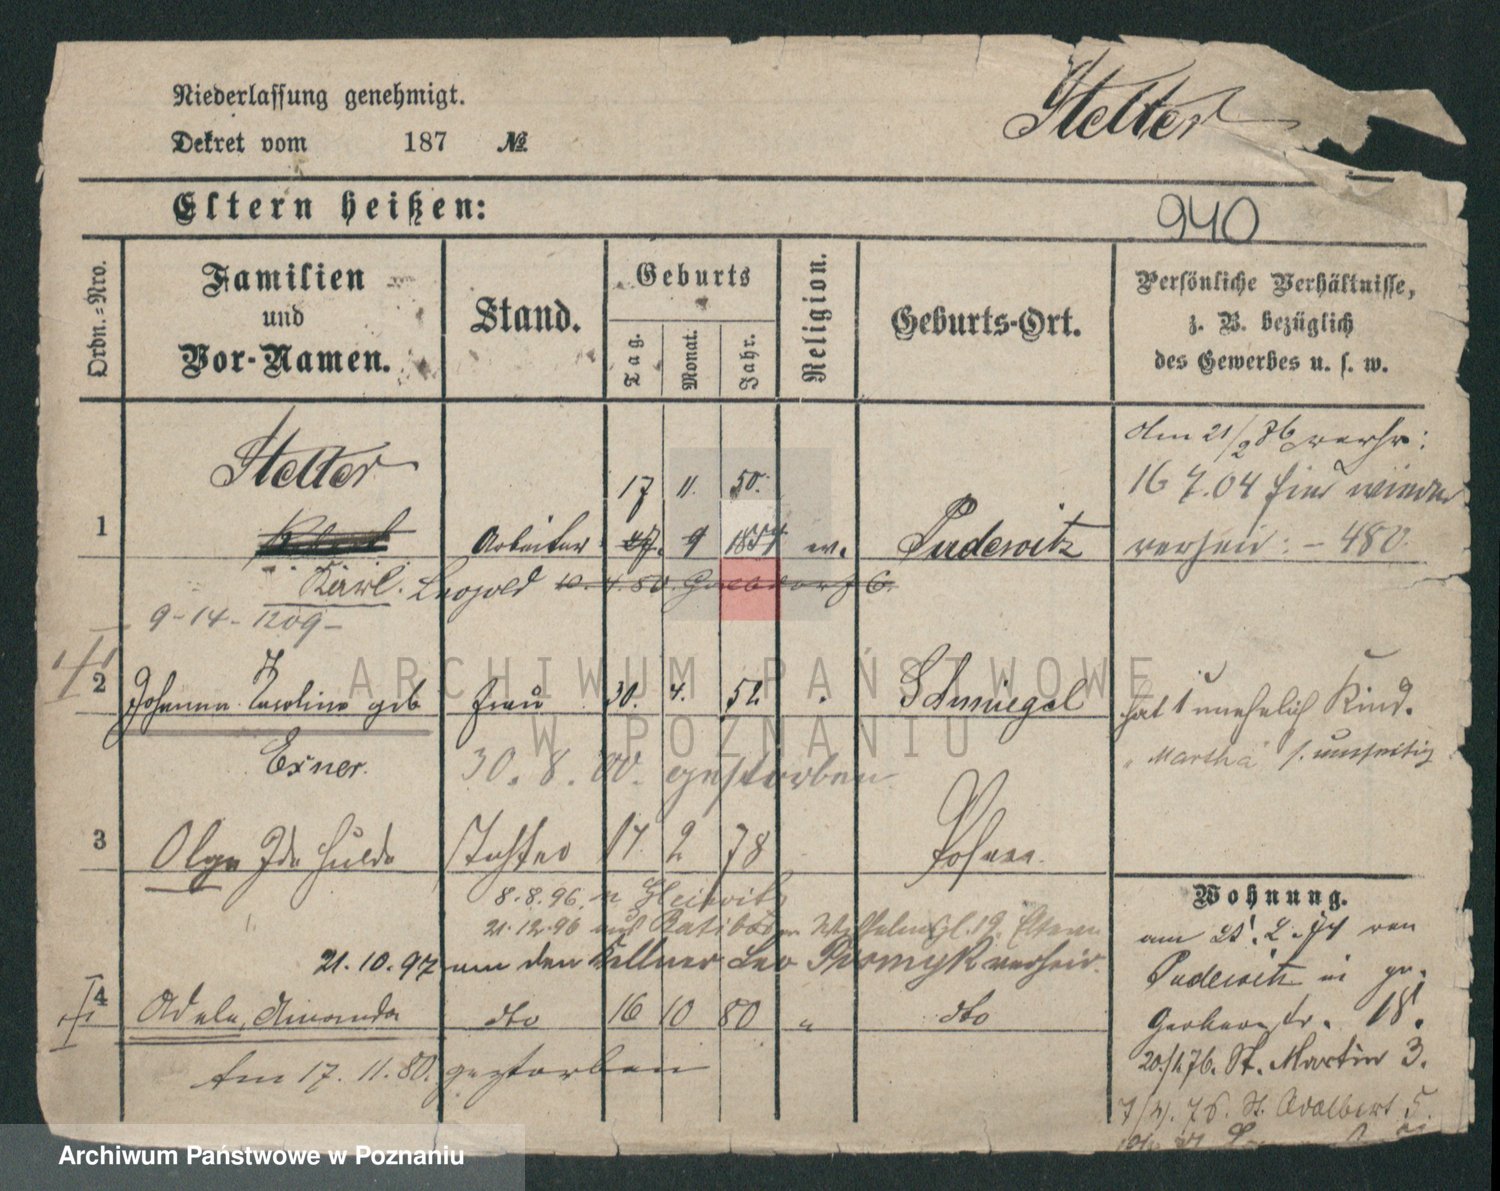 Niederlassung genehmigt.
Stelter
Dekret vom 187 №
Eltern heißen:
940
Ordn.-Nro.
Familien und Vor-Namen.
Stand.
Geburts
Tag.
Monat.
Jahr.
Religion.
Geburts-Ort.
Persönliche Verhältnisse,
z. B. bezüglich
des Gewerbes u. s. w.
Stelter
17 11. 50.
1 Arbeiter 9 1857 ev. Pudewitz
Karl. Leopold
9-14-1209-
am 21/2 76 verhr:
16 7.04 hier wieder
verheir: - 480.
2 Johanna Karoline geb Frau 30. 4. 52 Schmiegel
Exner.
30. 8. 00. gestorben
hat 1 unehelich Kind.
"Martha" s. umseitig
3 Olga Ida Hulda Tochter 17 2 78 Posen.
8.8.96. n Gleiwitz
21.12.96 aus Ratibor Wilhelmspl. 19. Eltern
21.10.97 um den Kellner Leo Promyk verheir.
4 Adele, Amanda dto 16 10 80 " dto
Am 17. 11. 80. gestorben
Wohnung.
am 25. 2. 74 von
Pudewitz in
Gerberstr. 18.
20./1 76. St. Martin 3.
7/4. 76. St. Adalbert 5.
ARCHIWUM PAŃSTWOWE
W POZNANIU
Archiwum Państwowe w Poznaniu